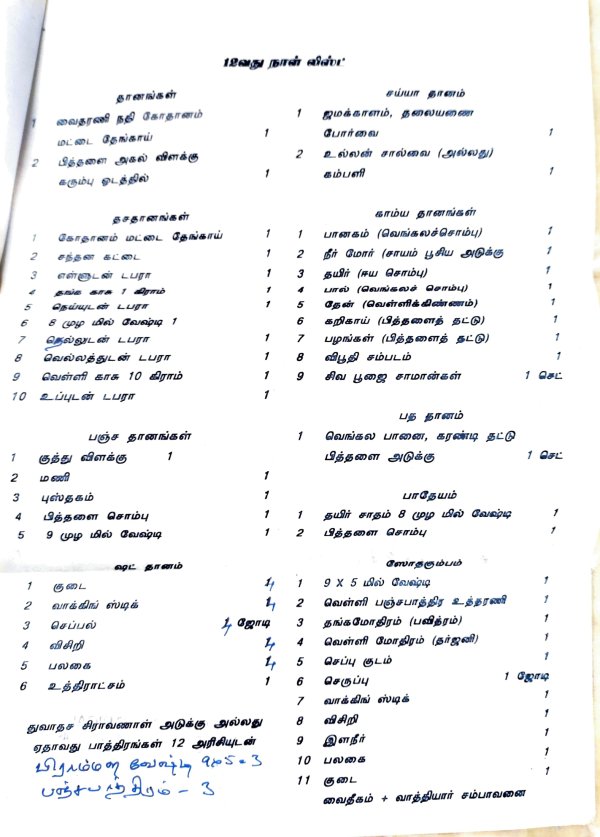 12வது நாள் லிஸ்ட்
தானங்கள்
1 வைதரணி நதி கோதானம்
மட்டை தேங்காய் 1
2 பித்தளை அகல் விளக்கு
கரும்பு ஓடத்தில் 1
தசதானங்கள்
1 கோதானம் மட்டை தேங்காய் 1
2 சந்தன கட்டை 1
3 எள்ளுடன் டபரா 1
4 தங்க காசு 1 கிராம் 1
5 நெய்யுடன் டபரா 1
6 8 முழ மில் வேஷ்டி 1 1
7 நெல்லுடன் டபரா 1
8 வெல்லத்துடன் டபரா 1
9 வெள்ளி காசு 10 கிராம் 1
10 உப்புடன் டபரா 1
பஞ்ச தானங்கள்
1 குத்து விளக்கு 1
2 மணி 1
3 புஸ்தகம் 1
4 பித்தளை சொம்பு 1
5 9 முழ மில் வேஷ்டி 1
ஷட் தானம்
1 குடை 4
2 வாக்கிங் ஸ்டிக் 4
3 செப்பல் 4 ஜோடி
4 விசிறி 4
5 பலகை 4
6 உத்திராட்சம் 1
துவாதச சிராவணாள் அடுக்கு அல்லது
ஏதாவது பாத்திரங்கள் 12 அரிசியுடன்
பிராம்மண வேஷ்டி 9x5 - 3
பஞ்சபாத்திரம் - 3
சய்யா தானம்
1 ஜமக்காளம், தலையணை
போர்வை 1
2 உல்லன் சால்வை (அல்லது)
கம்பளி 1
காம்ய தானங்கள்
1 பானகம் (வெங்கலச்சொம்பு) 1
2 நீர் மோர் (சாயம் பூசிய அடுக்கு 1
3 தயிர் (ஈய சொம்பு) 1
4 பால் (வெங்கலச் சொம்பு) 1
5 தேன் (வெள்ளிக்கிண்ணம்) 1
6 கறிகாய் (பித்தளைத் தட்டு) 1
7 பழங்கள் (பித்தளைத் தட்டு) 1
8 விபூதி சம்படம் 1
9 சிவ பூஜை சாமான்கள் 1 செட்
பத தானம்
1 வெங்கல பானை, கரண்டி தட்டு
பித்தளை அடுக்கு 1 செட்
பாதேயம்
1 தயிர் சாதம் 8 முழ மில் வேஷ்டி 1
2 பித்தளை சொம்பு 1
ஸோதகும்பம்
1 9 X 5 மில் வேஷ்டி 1
2 வெள்ளி பஞ்சபாத்திர உத்தரணி 1
3 தங்கமோதிரம் (பவித்ரம்) 1
4 வெள்ளி மோதிரம் (தர்ஜனி) 1
5 செப்பு குடம் 1
6 செருப்பு 1 ஜோடி
7 வாக்கிங் ஸ்டிக் 1
8 விசிறி 1
9 இளநீர் 1
10 பலகை 1
11 குடை 1
வைதீகம் + வாத்தியார் சம்பாவனை